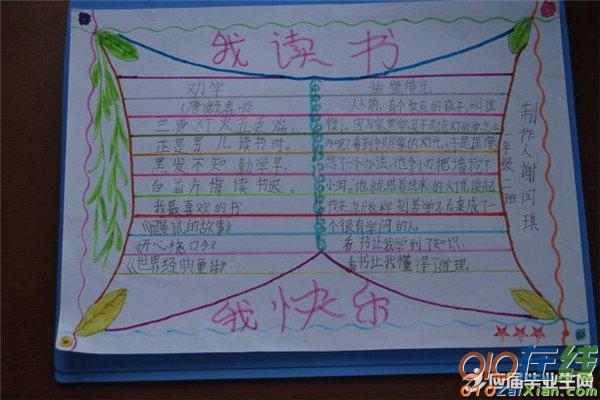 我读书
劝学
(唐颜真卿
三更灯火五更鸡,
正是男儿读书时。
黑发不知勤学早,
白首方悔读书迟。
我最喜欢的书
《鼹鼠的故事》
《开心绕口令》
《世界经典童话》
凿壁借光
从前,有个农民的孩子,叫匡
衡。因为家里穷买不起点灯的油怎么
办呢?看到邻居家的灯光,于是匡衡
想了个办法,他拿小刀把墙凿了
小洞。他就借着透来的灯光读起
书来,就这样刻苦学习后来成了一
个很有学问的人。
看书让我学到了知识
看书让我懂得了道理。
制作人谢闰琪
一年级二班
我快乐
010在线
010zaixian.com
应届毕业生网